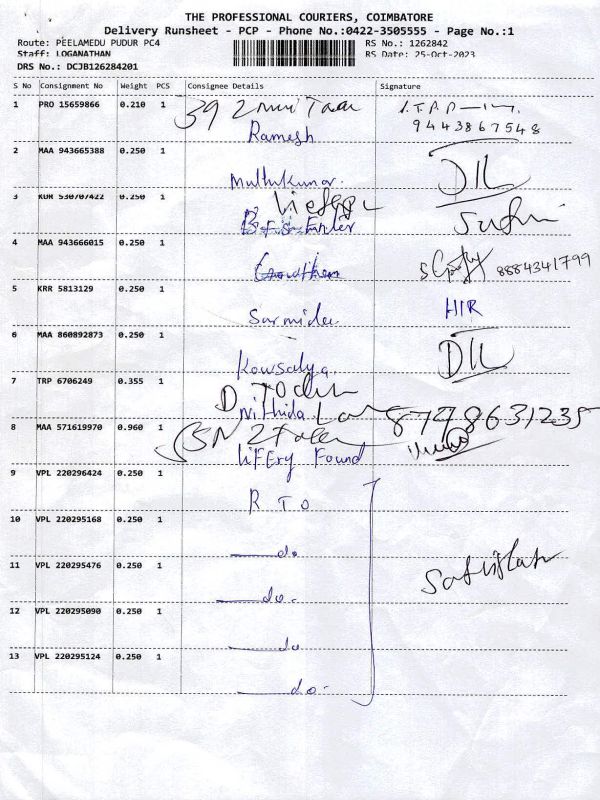 THE PROFESSIONAL COURIERS, COIMBATORE
Delivery Runsheet - PCP - Phone No.:0422-3505555 - Page No.:1
Route: PEELAMEDU PUDUR PC4 RS No.: 1262842
Staff: LOGANATHAN RS Date: 25-Oct-2023
DRS No.: DCJB126284201
S No Consignment No Weight PCS Consignee Details Signature
1 PRO 15659866 0.210 1 39
Ramesh 9443867548
2 MAA 943665388 0.250 1
Muthukumar. DIL
3 KUR 530707422 0.250 1
4 MAA 943666015 0.250 1
Gowtham 8884341799
5 KRR 5813129 0.250 1
Sarmidee. HIR
6 MAA 860892873 0.250 1
Kowsalya. DIL
7 TRP 6706249 0.355 1
Nithida 8778631235
8 MAA 571619970 0.960 1
LiFEry Found
9 VPL 220296424 0.250 1
R T O
10 VPL 220295168 0.250 1
do
11 VPL 220295476 0.250 1
do.
12 VPL 220295090 0.250 1
do
13 VPL 220295124 0.250 1
do.